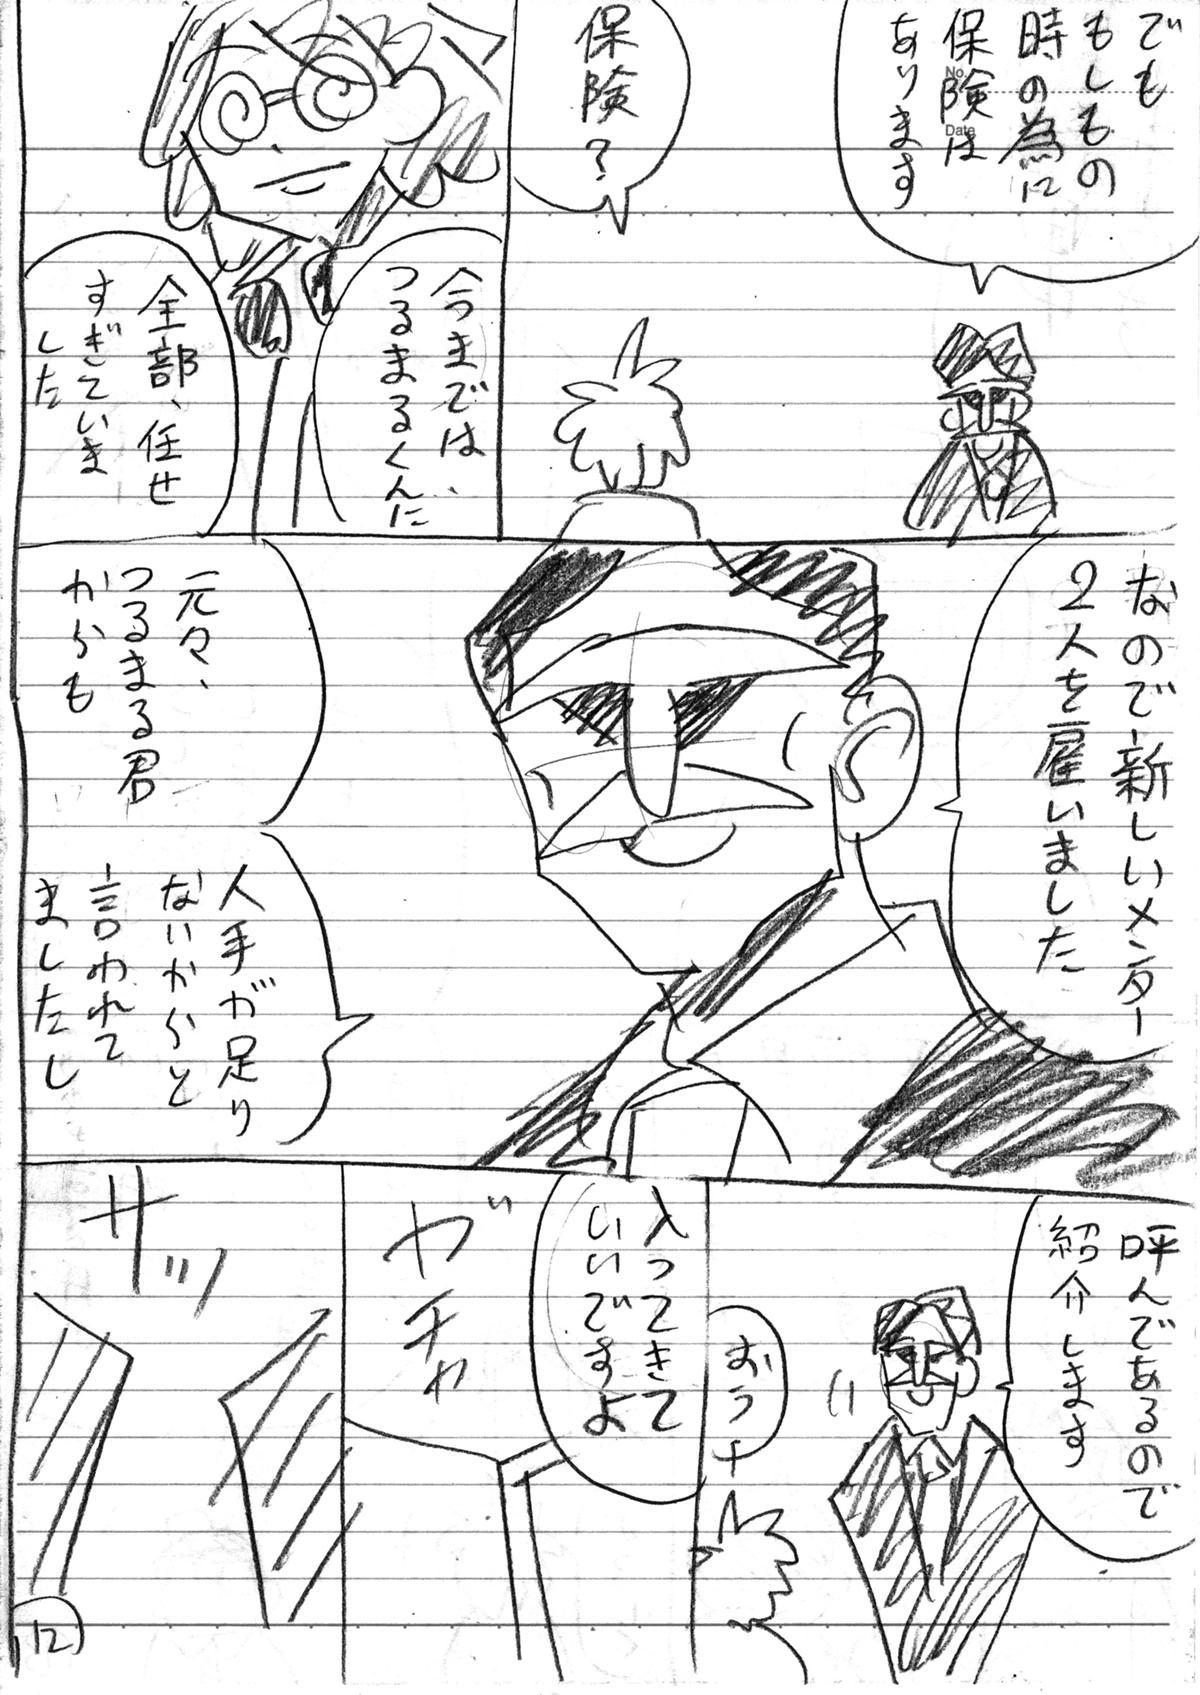 でも
もしもの
時の為に
保険は
あります
No.
Date
保険?
今までは、
つるまるくんに
全部、任せ
すぎていま
した
なので新しいメンター
2人を雇いました
元々、
つるまる君
からも
人手が足り
ないからと
言われて
ましたし
呼んであるので
紹介します
おうナ
入ってきて
いいですよ
ガチャ
サッ
12